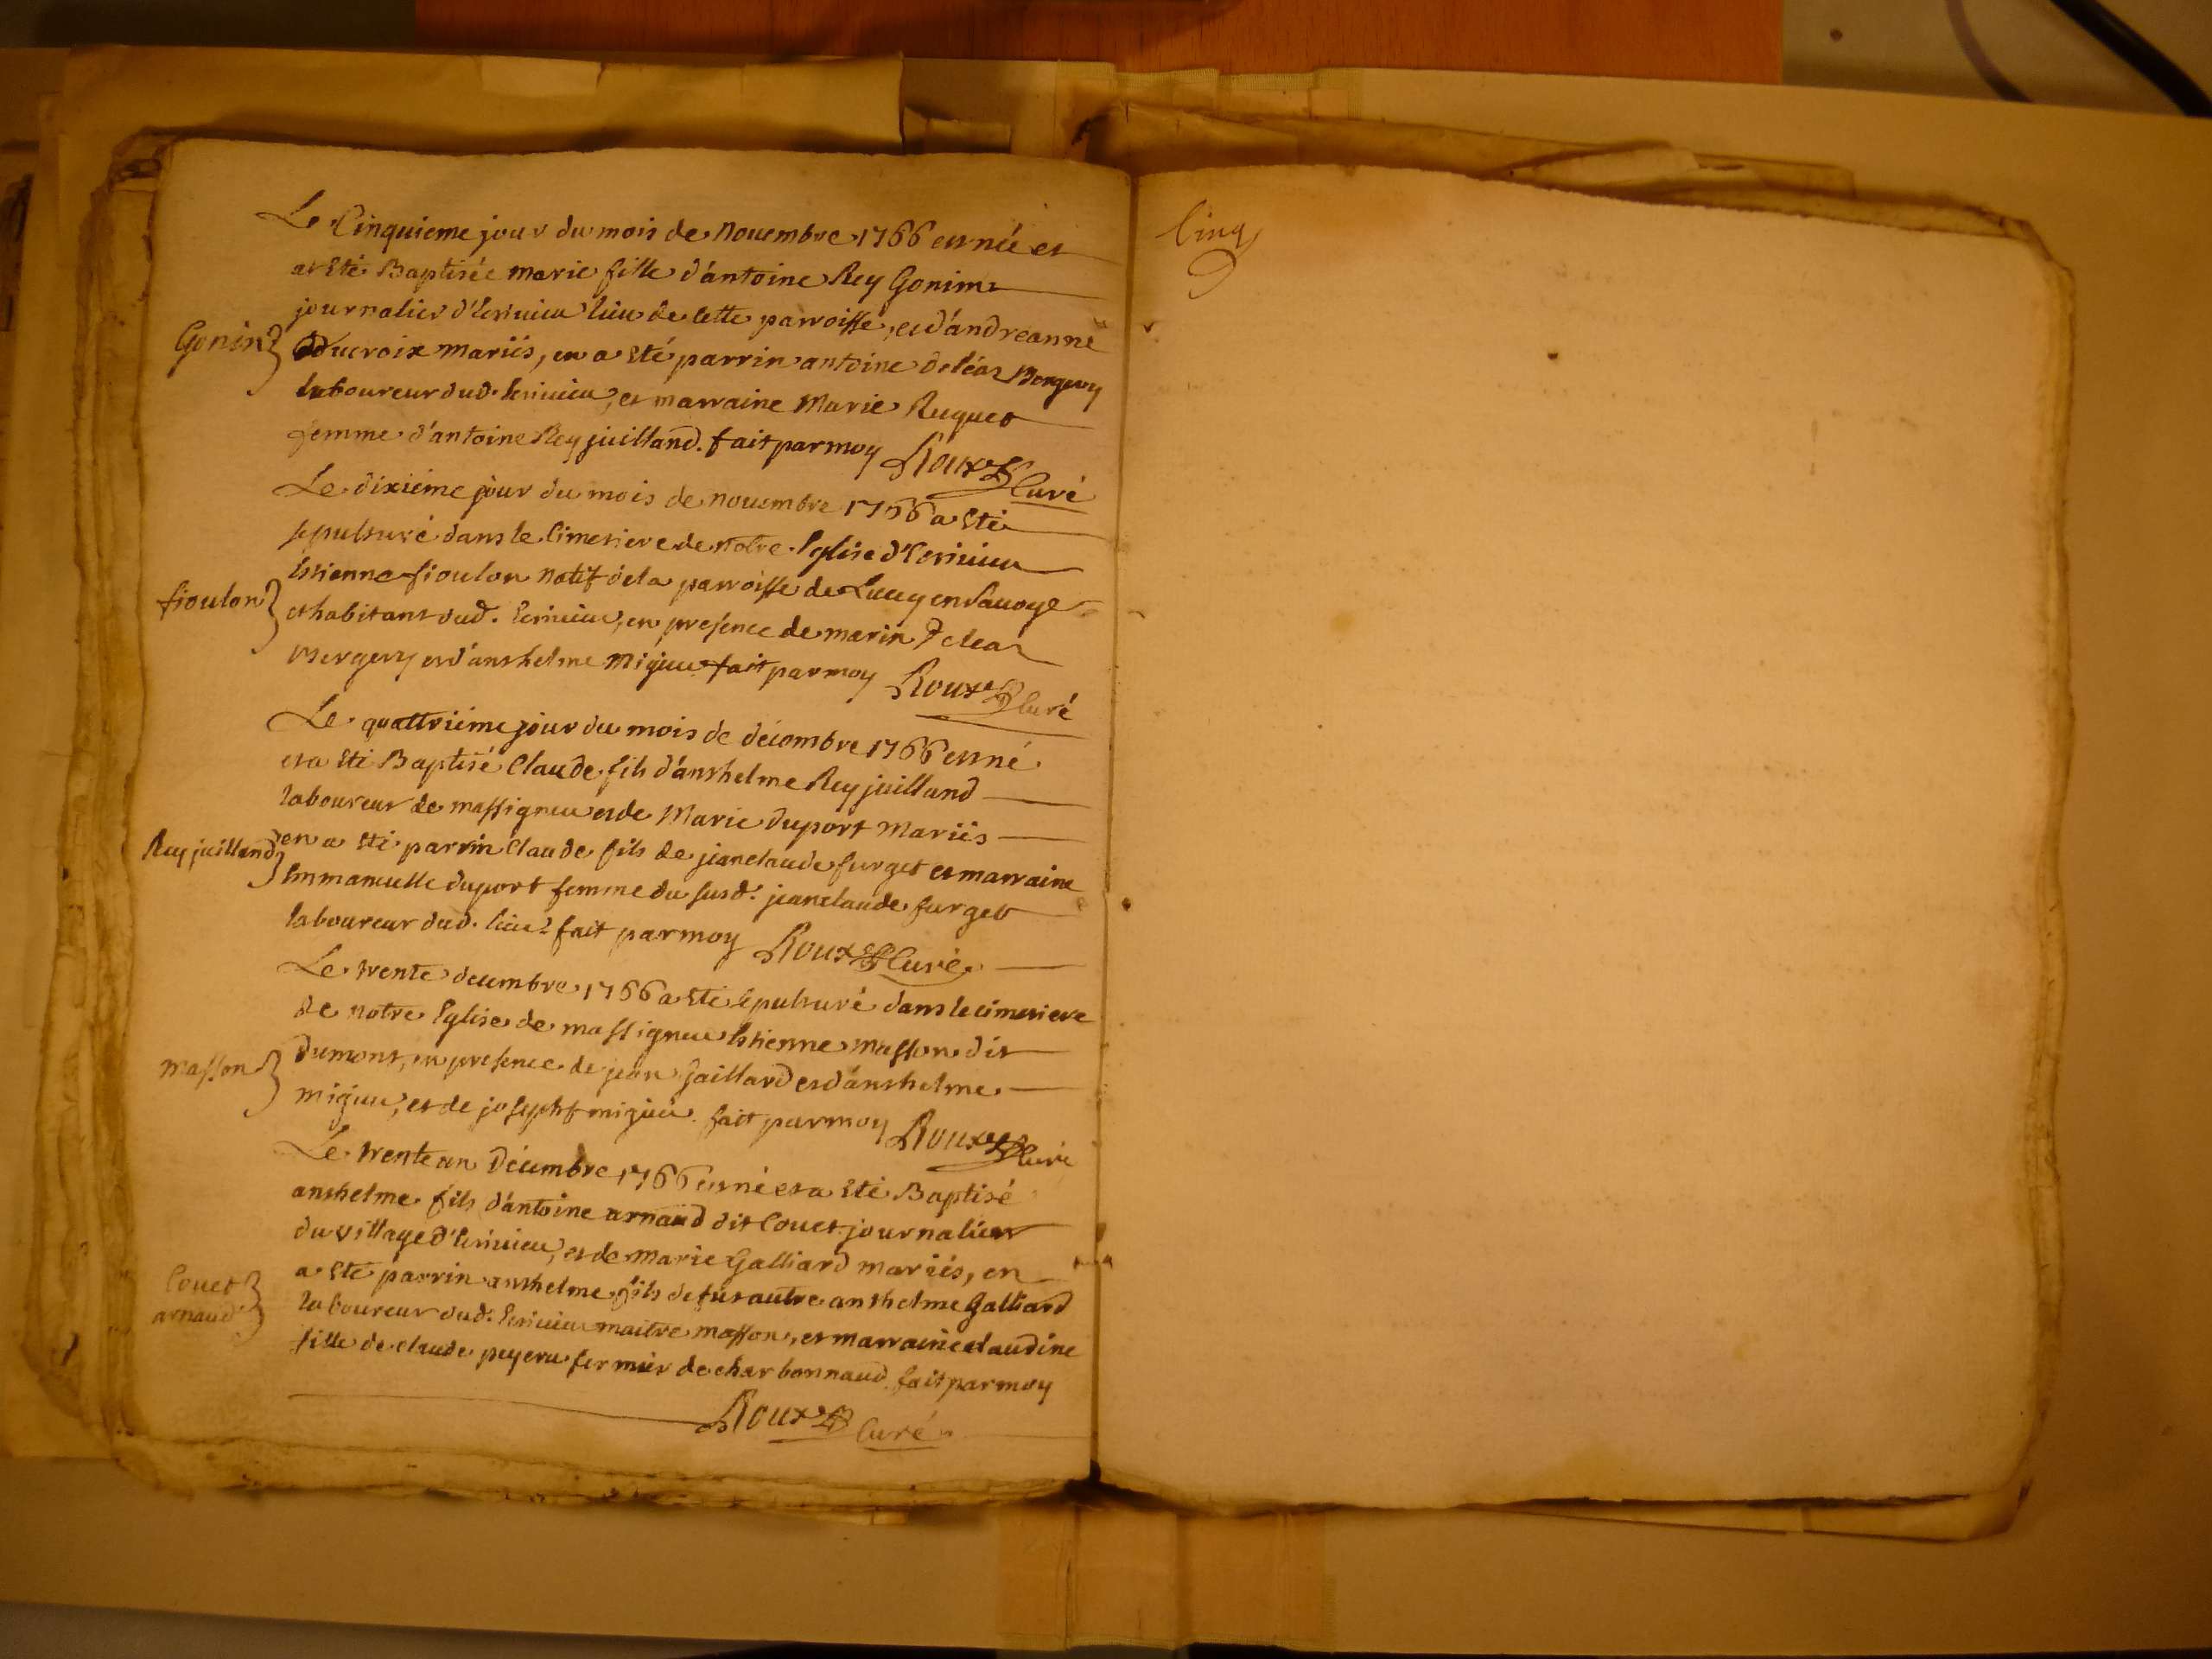 Le Cinquieme jour du mois de Nouembre 1766 est née et
a Eté Baptisée Marie fille d'antoine Rey Gonin
journalier d'Ecriuieu lieu de cette parroisse, et d'andreanne
Gonin Ducroix Mariés, en a Eté parrin antoine deléaz Bergery
laboureur dud. Ecriuieu, et marraine Marie Ruquet
femme d'antoine Rey juilland. fait par moy Roux Curé
Le dixiéme jour du mois de nouembre 1766 a Eté
sepulturé dans le Cimetiere de Notre Eglise d'Ecriuieu
Estienne fioulon Natif de la parroisse de Lucey en Sauoye
fioulon et habitant dud. Ecriuieu, en presence de marin deleaz
Bergery et d'anthelme Migieu fait par moy Roux Curé
Le quattriéme jour du mois de décembre 1766 est né
et a Eté Baptisé Claude fils d'anthelme Rey juilland
laboureur de massignieu et de Marie duport Mariés
Rey juilland en a Eté parrin Claude fils de jeanclaude furget et marraine
Emmanuelle duport femme du susd. jeanclaude furget
laboureur dud. lieu fait par moy Roux Curé
Le trente decembre 1766 a Eté sepulturé dans le cimetiere
de Notre Eglise de massignieu Estienne Masson dit
Masson dumont, en presence de jean Gaillard et d'anthelme
migieu, et de joseph migieu fait par moy Roux Curé
Le trente un Décembre 1766 est né et a Eté Baptisé
anthelme fils d'antoine arnaud dit Couet journalier
du village d'Ecriuieu, et de Marie Galliard mariés, en
Couet a Eté parrin anthelme fils de fut autre anthelme Galliard
arnaud laboureur dud. Ecriuieu maitre masson, et marraine claudine
fille de claude fermier de charbonnaud. fait par moy
Roux Curé
Cinq